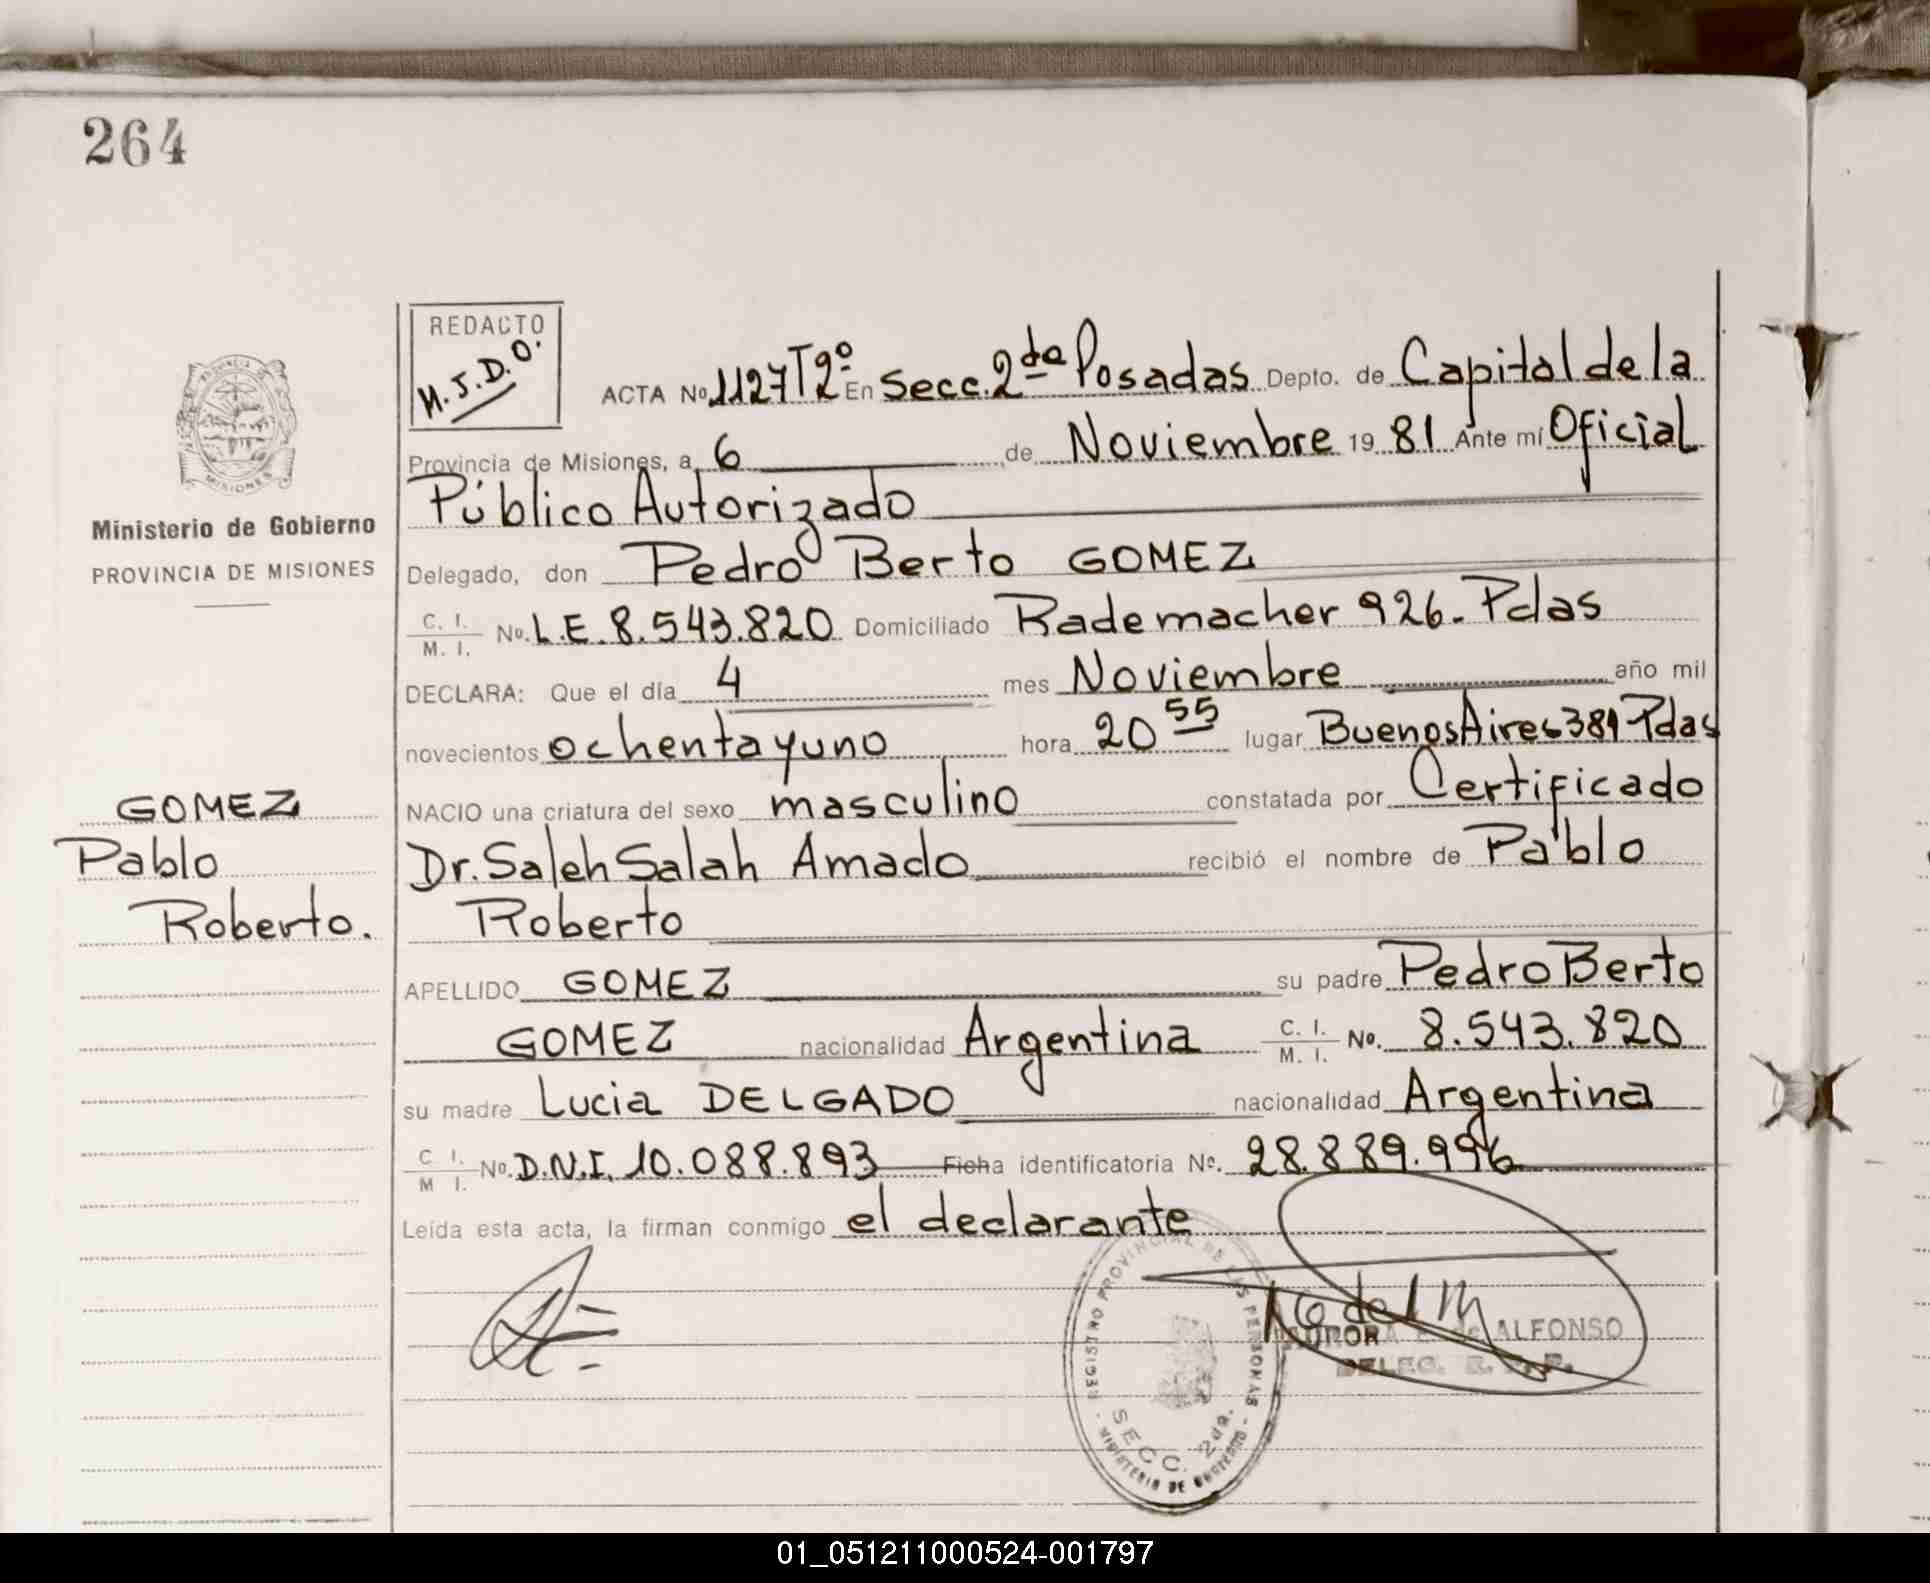 264
REDACTO
M.J.D.O.
ACTA No. 1127 T2º En Secc. 2da Posadas Depto. de Capital de la
Provincia de Misiones, a 6 de Noviembre 19 81 Ante mí Oficial
Público Autorizado
Ministerio de Gobierno
PROVINCIA DE MISIONES
Delegado, don Pedro Berto GOMEZ
C. I. M. I. No. L.E. 8.543.820 Domiciliado Rademacher 926. Pdas
DECLARA: Que el día 4 mes Noviembre año mil
novecientos ochenta y uno hora 20 55 lugar Buenos Aires 381 Pdas
NACIO una criatura del sexo masculino constatada por Certificado
Dr. Saleh Salah Amado recibió el nombre de Pablo
Roberto
GOMEZ
Pablo
Roberto.
APELLIDO GOMEZ su padre Pedro Berto
GOMEZ nacionalidad Argentina C. I. M. I. No. 8.543.820
su madre Lucia DELGADO nacionalidad Argentina
C. I. M. I. No. D.N.I. 10.088.893 Ficha identificatoria No. 28.889.996
Leída esta acta, la firman conmigo el declarante
REGISTRO PROVINCIAL DE LAS PERSONAS
SECC. 2da.
MINISTERIO DE GOBIERNO
AURORA de ALFONSO
DELEG.
01_051211000524-001797